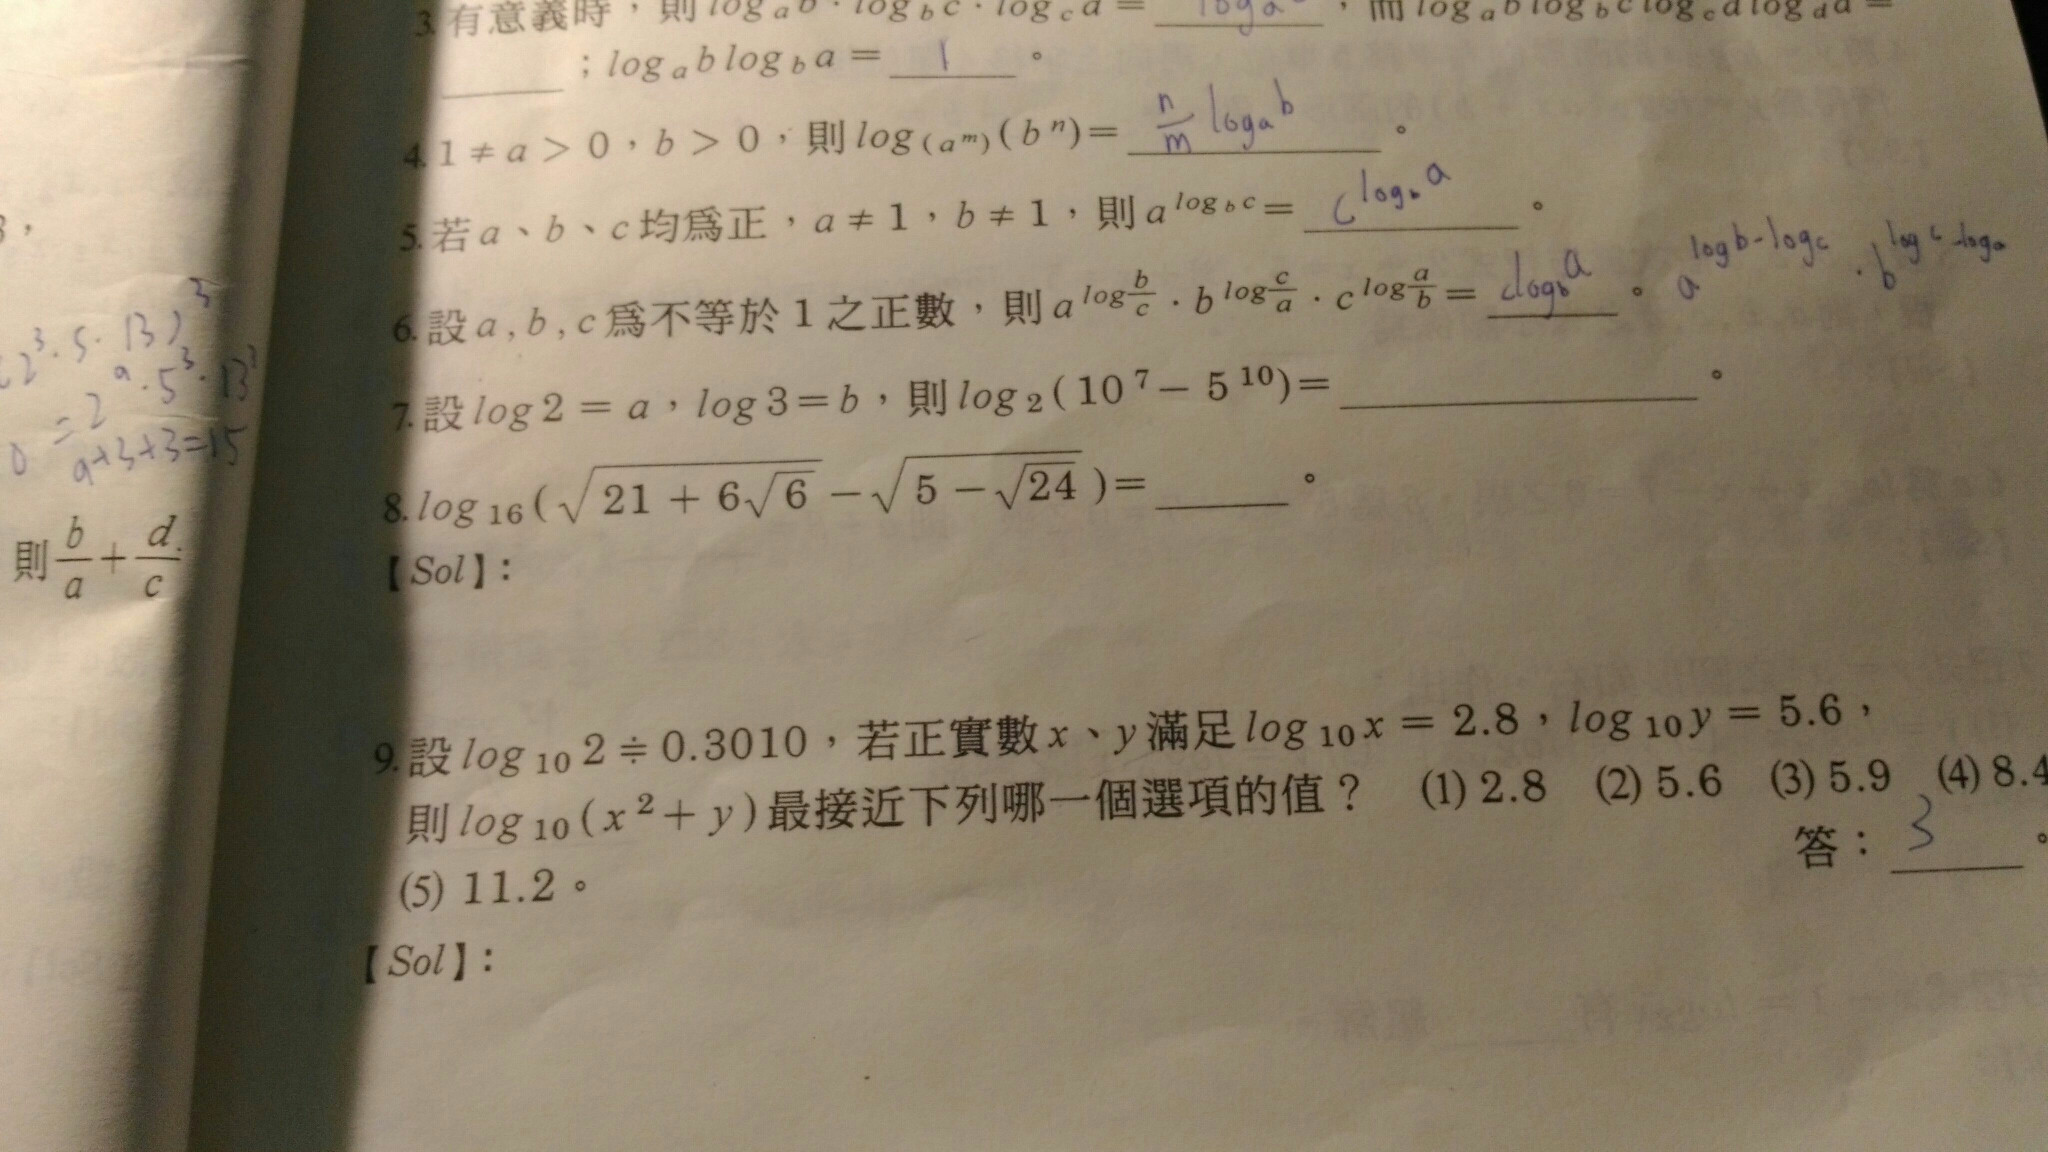 3. 有意義時,則 log_a b · log_b c · log_c d = log_a,而 log_a b log_b c log_c d log_d a =
______ ; log_a b log_b a = 1 。
4. 1 ≠ a > 0,b > 0,則 log_(a^m) (b^n) = n/m log_a b 。
5. 若 a、b、c 均為正,a ≠ 1,b ≠ 1,則 a^(log_b c) = c^(log_b a) 。
6. 設 a , b , c 為不等於 1 之正數,則 a^(log b/c) · b^(log c/a) · c^(log a/b) = c^(log_b a) 。 a^(logb-logc) · b^(logc-loga)
7. 設 log 2 = a,log 3 = b,則 log_2 ( 10^7 − 5^10 ) = ______ 。
8. log_16 ( √(21 + 6√6) − √(5 − √24) ) = ______ 。
【Sol】:
9. 設 log_10 2 ≑ 0.3010,若正實數 x、y 滿足 log_10 x = 2.8,log_10 y = 5.6,
則 log_10 ( x^2 + y ) 最接近下列哪一個選項的值? (1) 2.8 (2) 5.6 (3) 5.9 (4) 8.4
(5) 11.2。
答: 3 。
【Sol】:
3,
2^3 · 5 · 13)^3
= 2^9 · 5^3 · 13^3
9+3+3=15
則 b/a + d/c